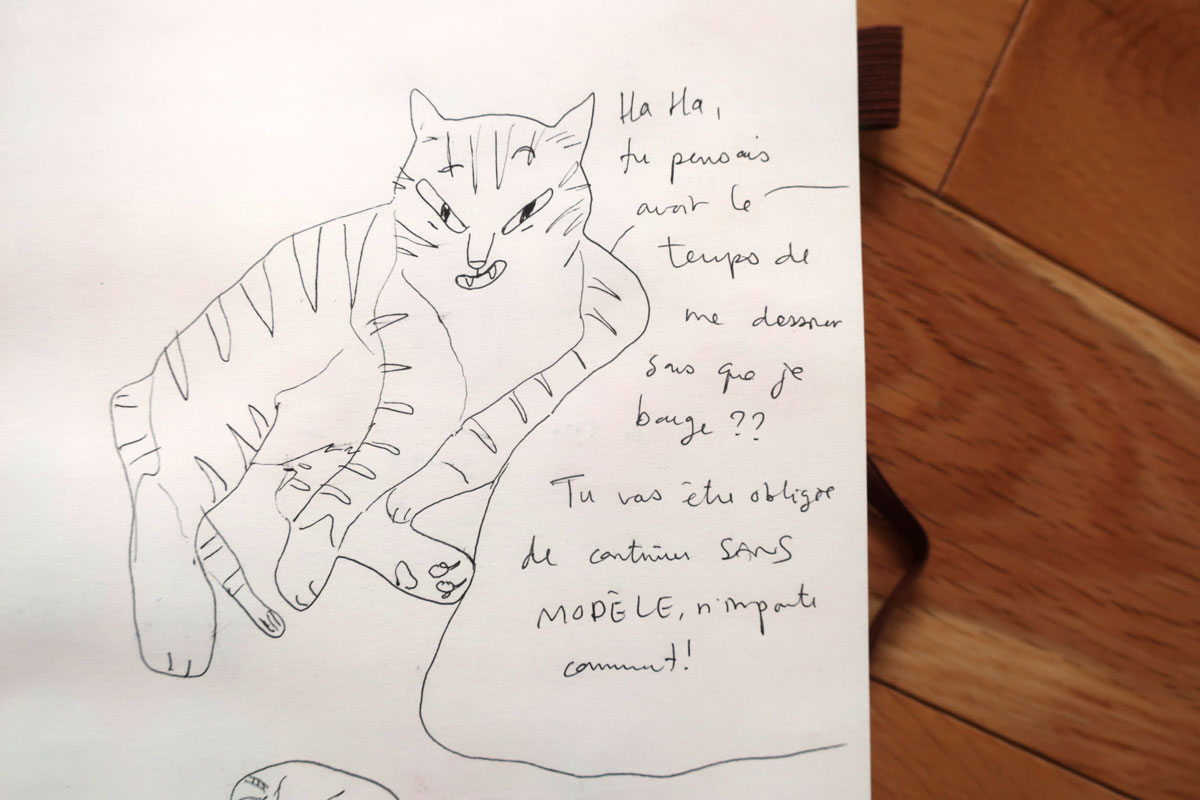 Ha Ha,
tu pensais
avoir le
temps de
me dessiner
sans que je
bouge ??
Tu vas être obligée
de continuer SANS
MODÈLE, n'importe
comment !